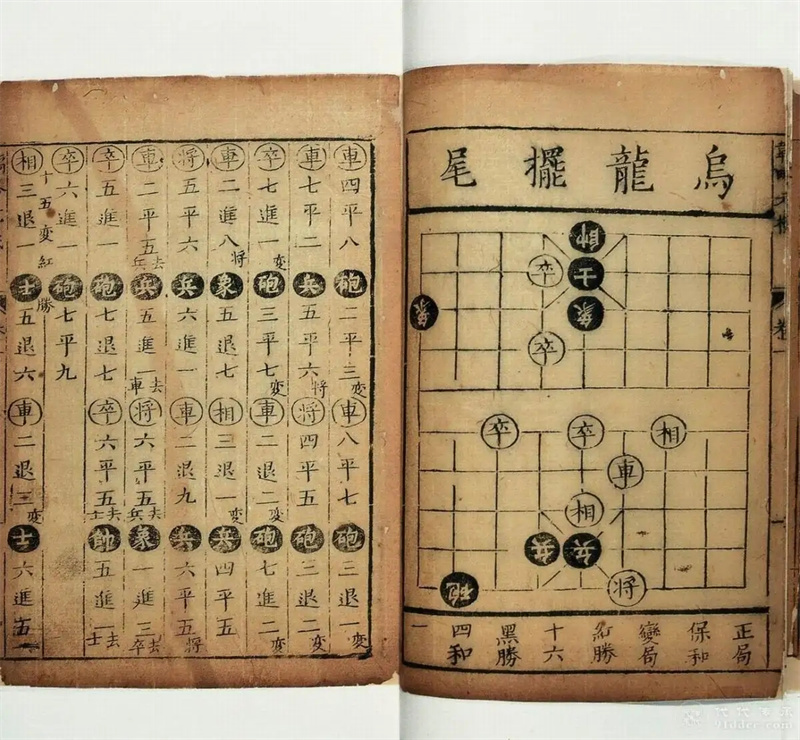 烏龍擺尾
帥
卒 士
象 象
卒
卒 卒 相
車
相
兵 兵
砲 将
正局
保和
變局
紅勝
十六
黑勝
四和
一
卷一
車四平八砲二平三変車八平七砲三退一変
車七平二兵五平六将将四平五砲三退二変
卒七進一変砲三平七変車二退二変砲七進二変
車二進八将象五退七相三退一変兵四平五
将五平六兵六進一車二退九兵六平五将
車二平五去兵兵五進一去車将六平五去兵象一進三去卒
卒五進一砲七退七卒六平五去士帥五進一去士
卒六進一砲七平九
十五変紅勝
相三退一士五退六車二退三変士六進五